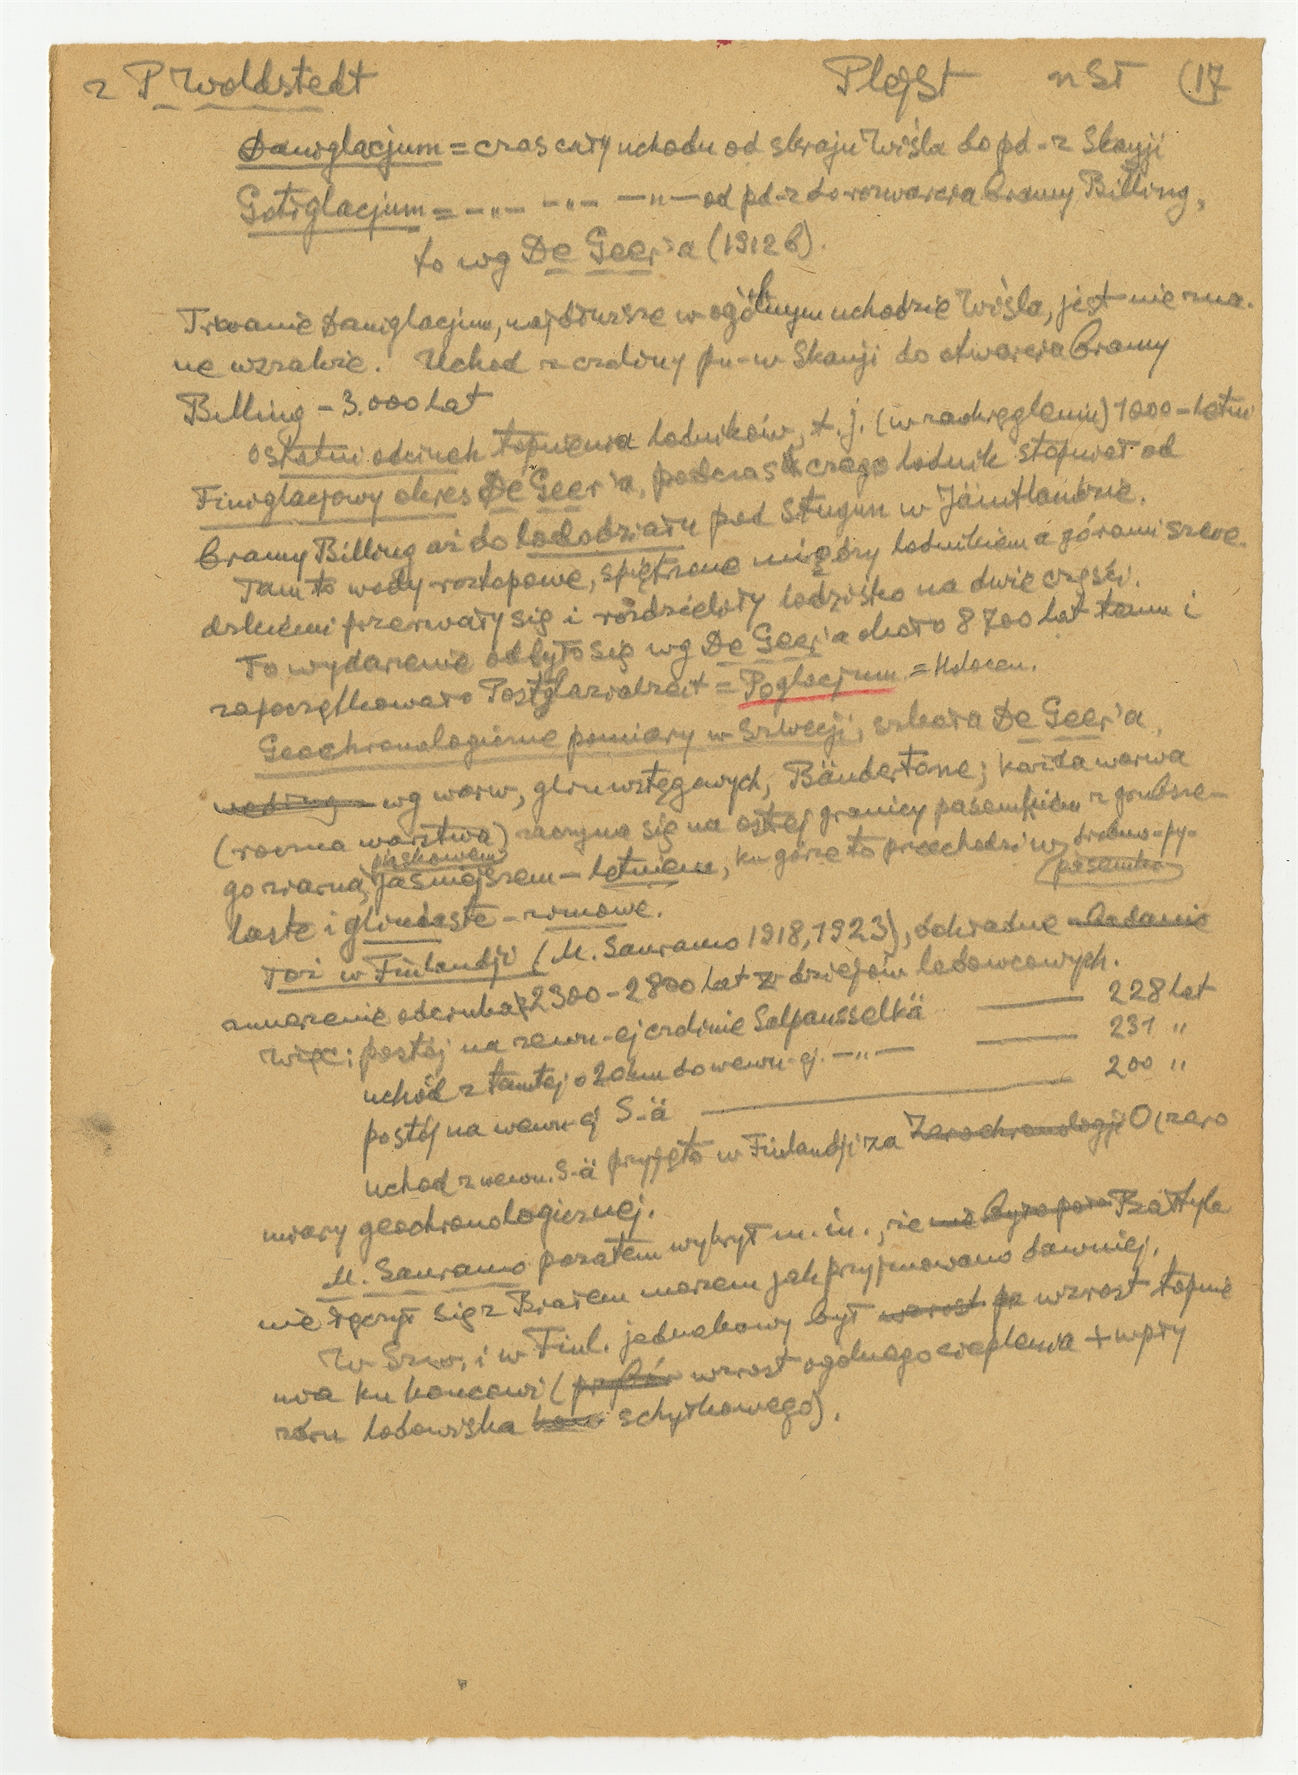 z P Woldstedt Plejst n St (17
Daniglacjum = czas cały uchodu od skraju Wiśla do pd-z Skanji
Gotiglacjum = -„- -„- -„- od pd-z do rozwarcia bramy Billing,
to wg De Geer'a (1912 b).
Trwanie Daniglacjum, najdłuższe w ogólnym uchodzie Wiśla, jest nie zna-
ne wzgl. Uchod z czeliny pn-w Skanji do otwarcia bramy
Billing - 3.000 lat
Ostatni odcinek topnienia lodników, t.j. (w zaokrągleniu) 1000-letni
Finiglacjowy okres De Geer'a, podczas czego lodnik stopniał od
bramy Billing aż do lododziału pod Stugun w Jämtlandzie.
Tam to wody roztopowe, spiętrzone między lodnikiem a górami szwe-
dzkiemi przerwały się i rozdzieliły lodzisko na dwie części.
To wydarzenie odbyło się wg De Geer'a około 8700 lat temu i
zapoczątkowało Postglazialzeit = Poglacjum = Holocen.
Geochronologiczne pomiary w Szwecji, szkoła De Geer'a,
wg warw, glin wstęgowych, Bändertone; każda warwa
(roczna warstwa) zaczyna się na ostrej granicy pasemkiem z grubsze-
go ziarna, piaskowem jaśniejszem - letniem, ku górze to przechodzi w drobno-py-
laste i gliniaste - zimowe. pasemko
Toż w Finlandji (M. Sauramo 1918, 1923), dokładne badanie
zmierzenie odcinka 2300-2800 lat z dziejów lodowcowych.
Więc: postój na zewn-ej czelinie Salpausselkä — 228 lat
uchód z tamtej o 20 km do wewn-ej. -„- — 231 „
postój na wewn-ej S-ä — 200 „
uchod z wewn. S-ä przyjęto w Finlandji za Zerochronologji 0 (zero
miary geochronologicznej.
M. Sauramo pozatem wykrył m. in., że nie było pora Bałtyk
nie łączył się z Białem morzem jak przyjmowano dawniej.
W Szw. i w Finl. jednakowy był wzrost pr wzrost topnie
nia ku końcowi (wzrost ogólnego cieplenia + wpły
lodowiska schyłkowego).